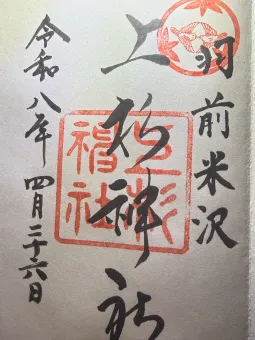 羽前米沢
上杉神社
令和八年四月二十六日
上杉神社